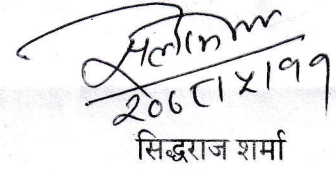 २०७८।५।११
सिद्धराज शर्मा